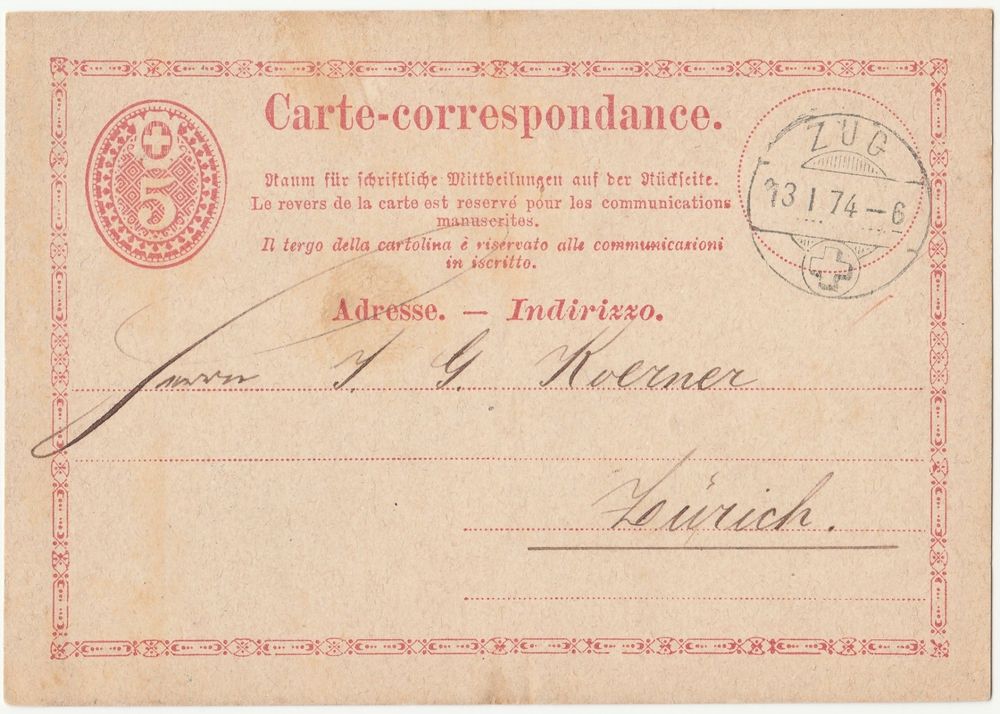 Carte-correspondance.
5
Raum für schriftliche Mittheilungen auf der Rückseite.
Le revers de la carte est reservé pour les communications
manuscrites.
Il tergo della cartolina è riservato alle communicazioni
in iscritto.
ZUG
13 I 74 - 6
Adresse. — Indirizzo.
Herrn J. G. Koerner
Zürich.